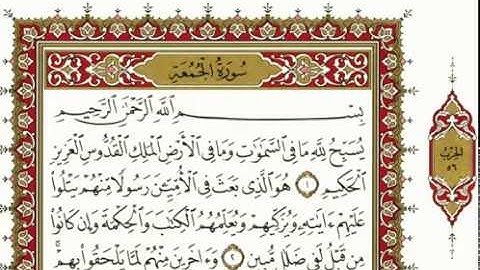 سُورَةُ الْجُمُعَةِ
بِسْمِ اللَّهِ الرَّحْمَٰنِ الرَّحِيمِ
يُسَبِّحُ لِلَّهِ مَا فِي السَّمَٰوَٰتِ وَمَا فِي الْأَرْضِ الْمَلِكِ الْقُدُّوسِ الْعَزِيزِ
الْحَكِيمِ ١ هُوَ الَّذِي بَعَثَ فِي الْأُمِّيِّينَ رَسُولًا مِّنْهُمْ يَتْلُوا
عَلَيْهِمْ ءَايَٰتِهِ وَيُزَكِّيهِمْ وَيُعَلِّمُهُمُ الْكِتَٰبَ وَالْحِكْمَةَ وَإِن كَانُوا
مِن قَبْلُ لَفِي ضَلَٰلٍ مُّبِينٍ ٢ وَءَاخَرِينَ مِنْهُمْ لَمَّا يَلْحَقُوا بِهِمْ
الحزب
٥٦